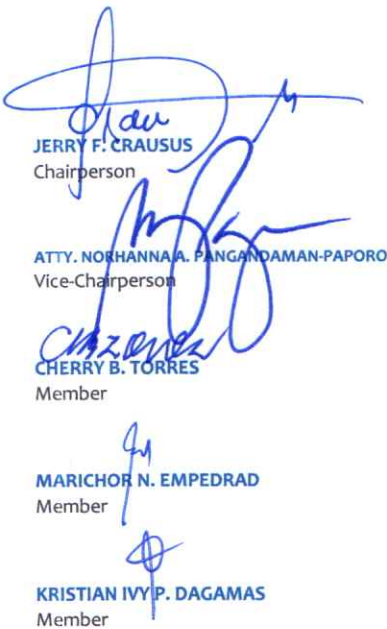 JERRY F. CRAUSUS
Chairperson
ATTY. NORHANNA A. PANGANDAMAN-PAPORO
Vice-Chairperson
CHERRY B. TORRES
Member
MARICHOR N. EMPEDRAD
Member
KRISTIAN IVY P. DAGAMAS
Member